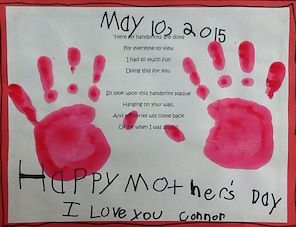 May 10, 2015
"Here my handprints are done
For everyone to view
I had so much fun
Doing this for you.
So look upon this handprint plaque
Hanging on your wall,
And memories will come back
Of me when I was small."
Happy Mother's Day
I Love you Connor